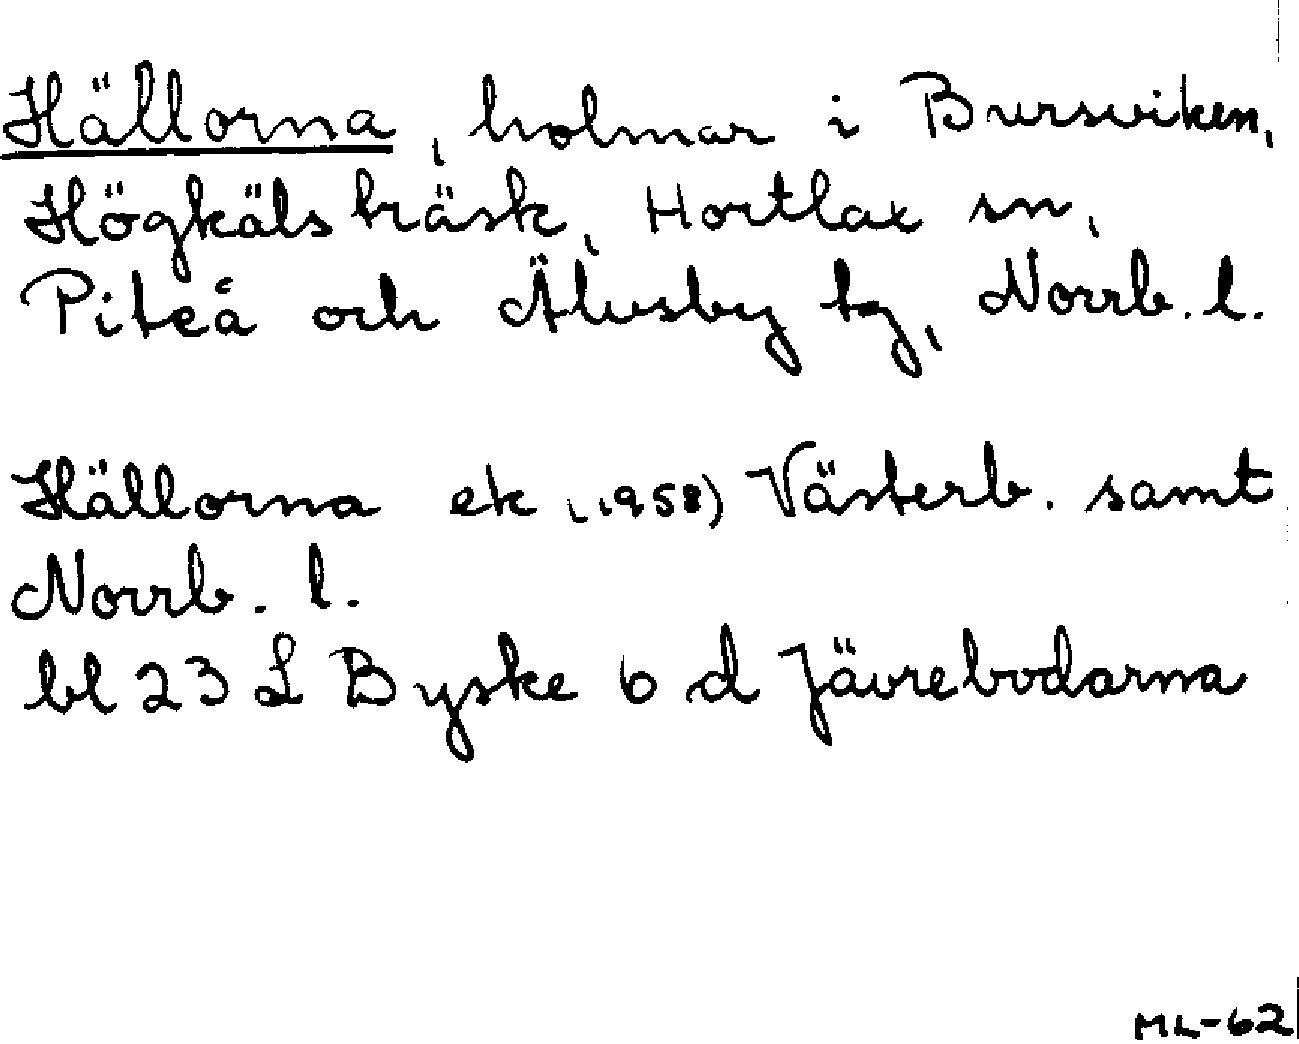 Hällorna, holmar i Bursviken,
Högkälsträsk, Hortlax sn,
Piteå och Älvsby tg, Norrb. l.
Hällorna ek (1958) Västerb. samt
Norrb. l.
bl 23 L Byske 6 d Jävrebodarna
ML-62